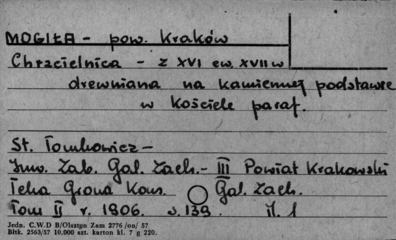 MOGIŁA - pow. Kraków
Chrzcielnica - z XVI ew. XVII w
drewniana na kamiennej podstawie
w Kościele paraf.
St. Tomkowicz -
Inw. Zab. Gal. Zach. - III Powiat Krakowski
Teka Grona Kons. Gal. Zach.
Tom II r. 1906. s. 139. il. 1
Jedn. C.W.D B/Olsztyn Zam 2776/on/ 57
Bltk. 2563/57 10.000 szt. karton kl. 7 g 220.